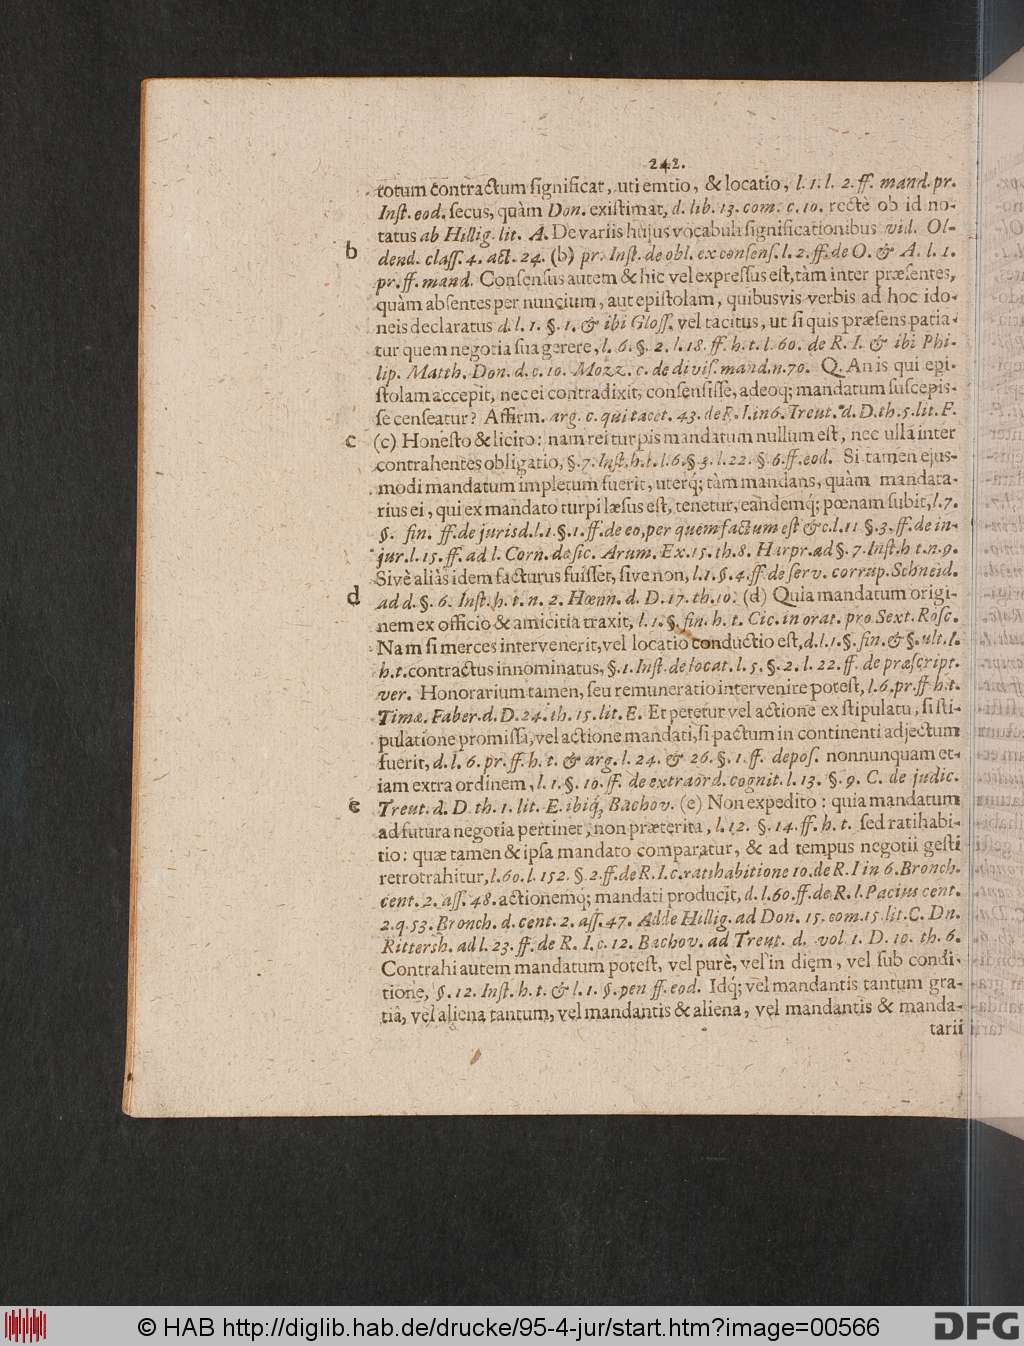 242.
totum contractum significat, uti emtio, & locatio, l. 1. l. 2. ff. mand. pr.
Inst. eod. secus, quàm Don. existimat, d. lib. 13. com. c. 10. rectè ob id no-
tatus ab Hillig. lit. A. De variis hujus vocabuli significationibus vid. Ol-
b
dend. class. 4. act. 24. (b) pr. Inst. de obl. ex consens. l. 2. ff. de O. & A. l. 1.
pr. ff. mand. Consensus autem & hic vel expressus est, tàm inter præsentes,
quàm absentes per nuncium, aut epistolam, quibusvis verbis ad hoc ido-
neis declaratus d. l. 1. §. 1. & ibi Gloss. vel tacitus, ut si quis præsens patia-
tur quem negotia sua gerere, l. 6. §. 2. l. 18. ff. h. t. l. 60. de R. I. & ibi Phi-
lip. Matth. Don. d. c. 10. Mozz. c. de divis. mand. n. 70. Q. An is qui epi-
stolam accepit, nec ei contradixit, consensisse, adeoq; mandatum suscepis-
se censeatur? Affirm. arg. c. qui tacet. 43. de R. I. in 6. Treut. d. D. th. 5. lit. F.
c
(c) Honesto & licito: nam rei turpis mandatum nullum est, nec ulla inter
contrahentes obligatio, §. 7. Inst. h. t. l. 6. §. 3. l. 22. §. 6. ff. eod. Si tamen ejus-
modi mandatum impletum fuerit, uterq; tàm mandans, quàm mandata-
rius ei, qui ex mandato turpi læsus est, tenetur, eandemq́; pœnam subit, l. 7.
§. fin. ff. de jurisd. l. 1. §. 1. ff. de eo, per quem factum est &c. l. 11 §. 3. ff. de in-
jur. l. 15. ff. ad l. Corn. de sic. Arum. Ex. 15. th. 8. Harpr. ad §. 7. Inst. h t. n. 9.
Sivè aliàs idem facturus fuisset, sive non, l. 1. §. 4. ff. de serv. corrup. Schneid.
d
ad d. §. 6. Inst. h. t. n. 2. Hœnn. d. D. 17. th. 10. (d) Quia mandatum origi-
nem ex officio & amicitia traxit, l. 1. §. fin. h. t. Cic. in orat. pro Sext. Rosc.
Nam si merces intervenerit, vel locatio conductio est, d. l. 1. §. fin. & §. ult. I.
h. t. contractus innominatus, §. 1. Inst. de locat. l. 5. §. 2. l. 22. ff. de præscript.
ver. Honorarium tamen, seu remuneratio intervenire potest, l. 6. pr. ff. h. t.
Timæ. Faber. d. D. 24. th. 15. lit. E. Et petetur vel actione ex stipulatu, si sti-
pulatione promissa, vel actione mandati, si pactum in continenti adjectum
fuerit, d. l. 6. pr. ff. h. t. & arg. l. 24. & 26. §. 1. ff. depos. nonnunquam et-
iam extra ordinem, l. 1. §. 10. ff. de extraord. cognit. l. 13. §. 9. C. de judic.
e
Treut. d. D. th. 1. lit. E. ibiq́; Bachov. (e) Non expedito: quia mandatum
ad futura negotia pertinet, non præterita, l. 12. §. 14. ff. h. t. sed ratihabi-
tio: quæ tamen & ipsa mandato comparatur, & ad tempus negotii gesti
retrotrahitur, l. 60. l. 152. §. 2. ff. de R. I. c. ratihabitione 10. de R. I in 6. Bronch.
cent. 2. ass. 48. actionemq́; mandati producit, d. l. 60. ff. de R. I. Pacius cent.
2. q. 53. Bronch. d. cent. 2. ass. 47. Adde Hillig. ad Don. 15. com. 15. lit. C. Dn.
Rittersh. ad l. 23. ff. de R. I. c. 12. Bachov. ad Treut. d. vol 1. D. 10. th. 6.
Contrahi autem mandatum potest, vel purè, vel in diem, vel sub condi-
tione, §. 12. Inst. h. t. & l. 1. §. pen ff. eod. Idq́; vel mandantis tantum gra-
tiâ, vel aliena tantum, vel mandantis & aliena, vel mandantis & manda-
tarii
© HAB http://diglib.hab.de/drucke/95-4-jur/start.htm?image=00566
DFG